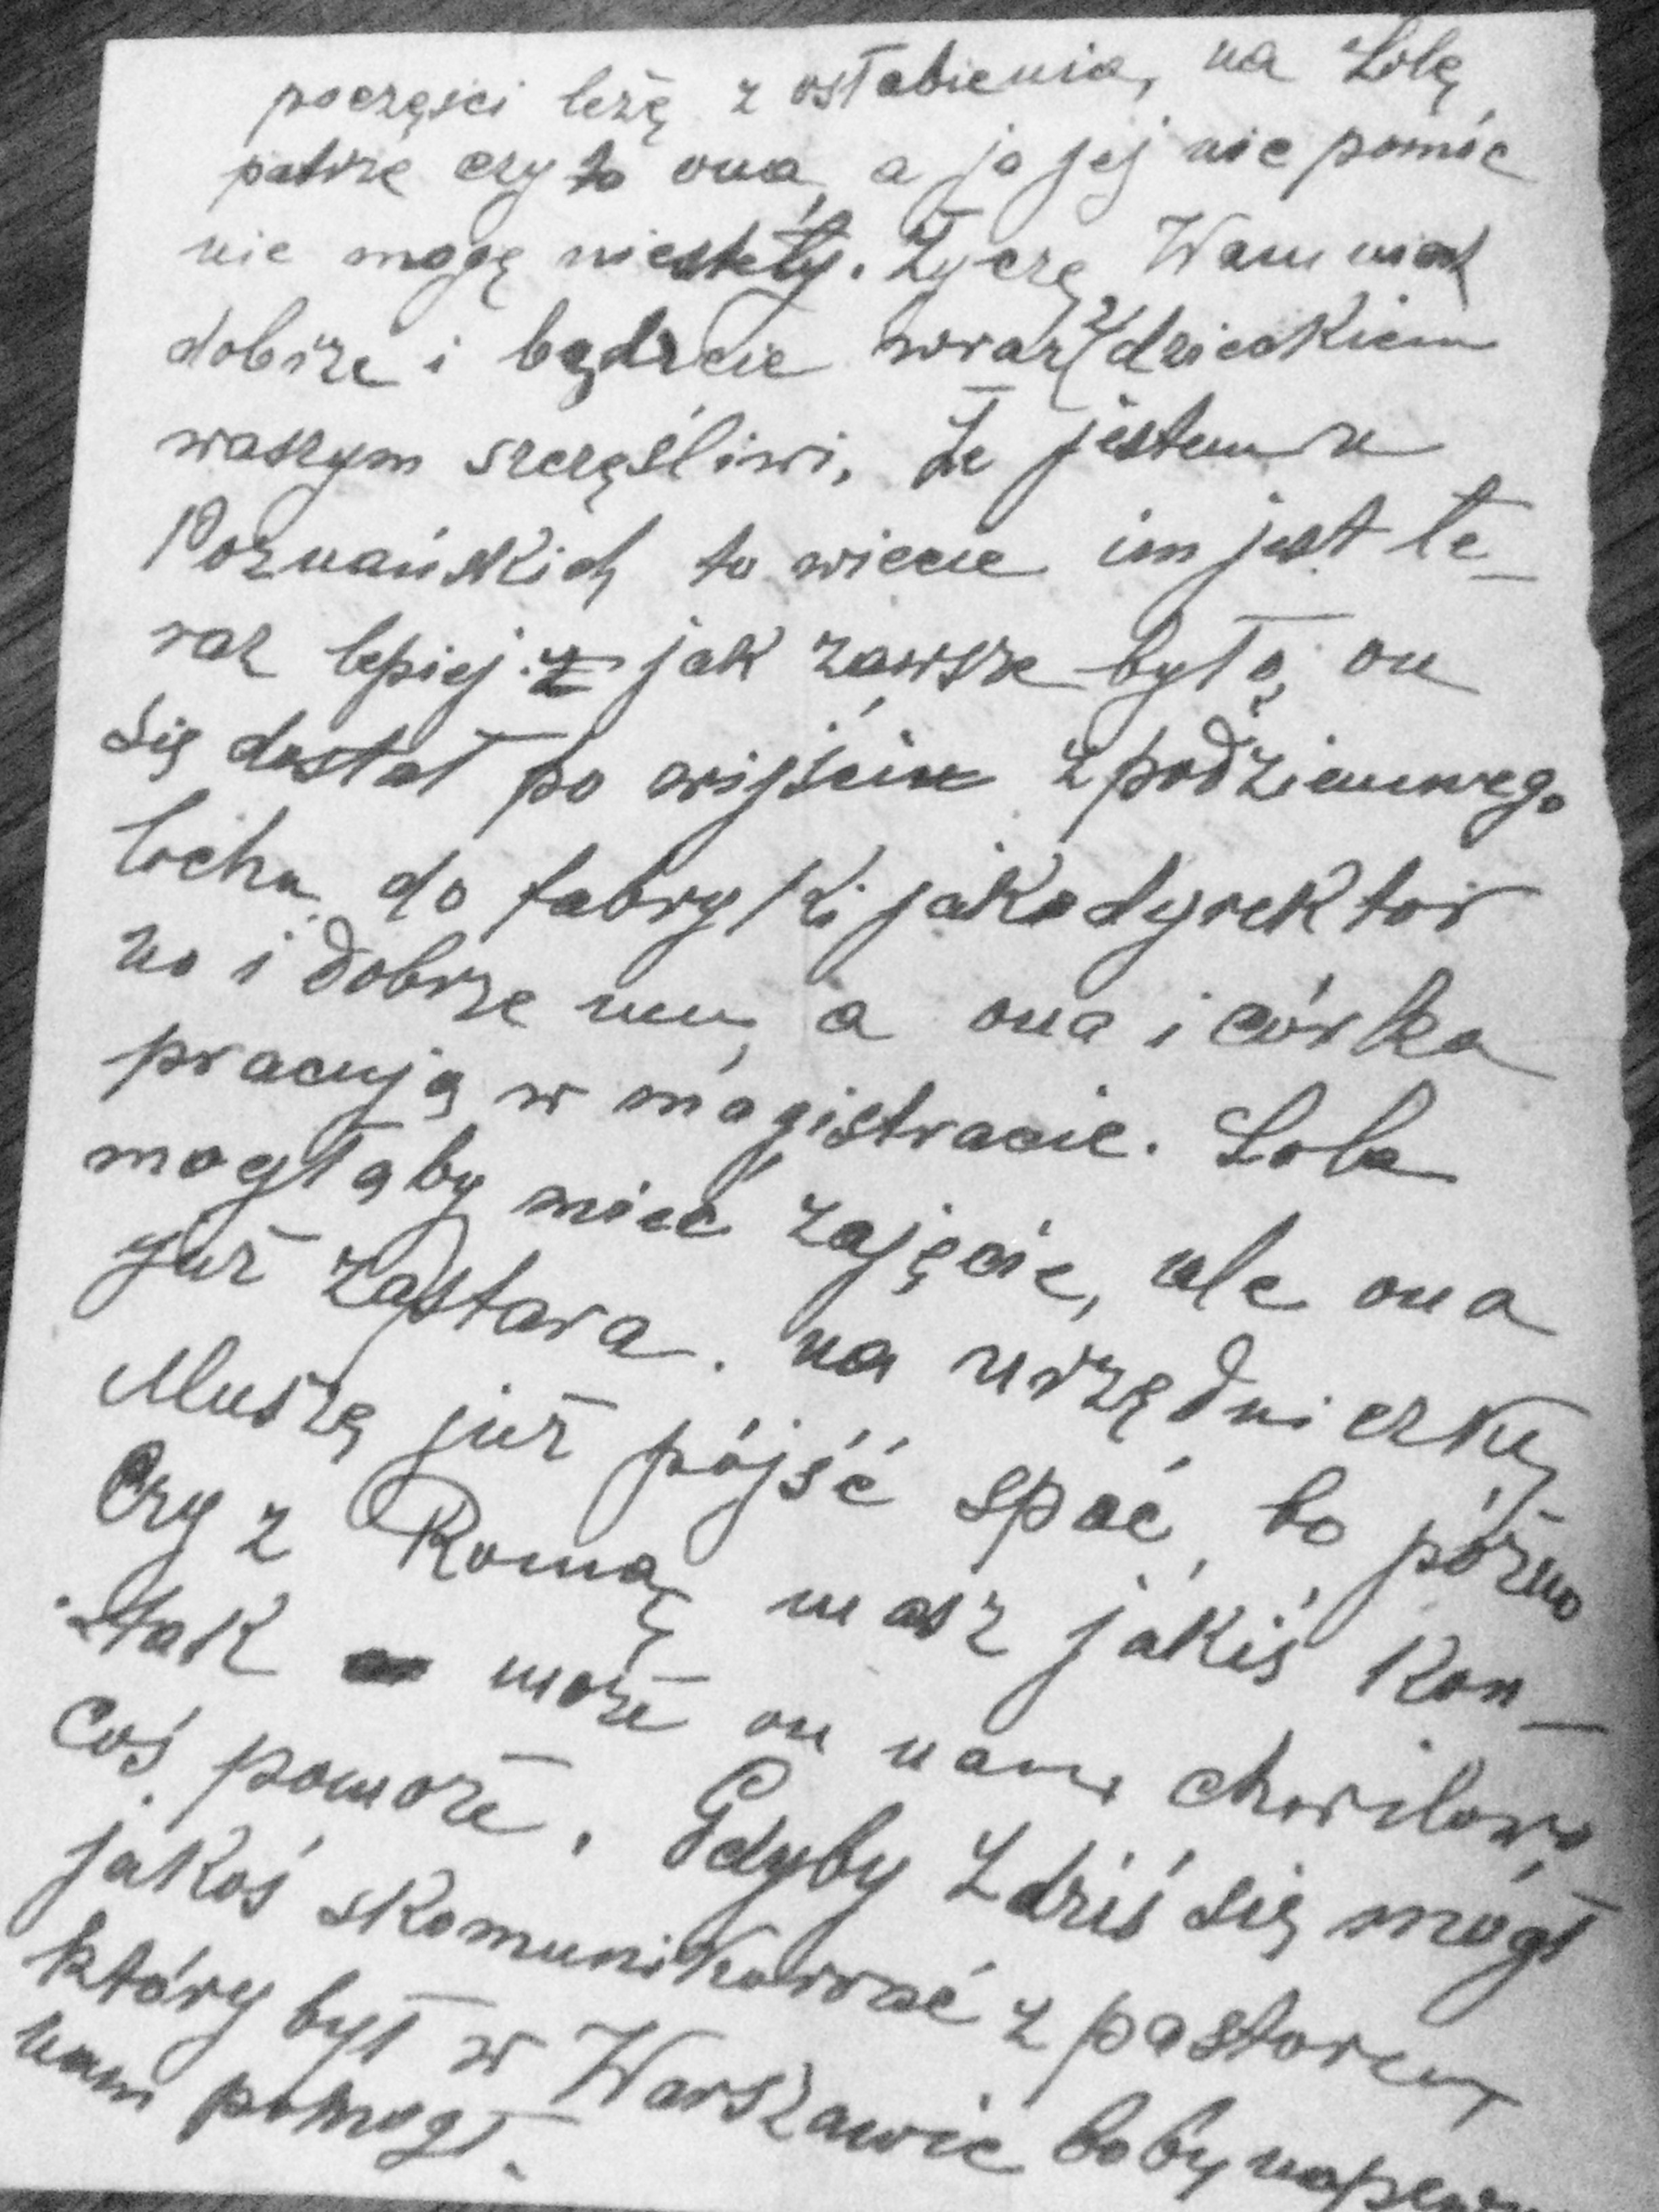 poczęsci leżę z osłabienia, na Lolę
patrzę czy to ona, a ja jej nic pomóc
nie mogę niestety. Życzę Wam
dobrze i będzcie wraz z dzieckiem
waszym szczęśliwi. Że jestem u
Poznańskich to wiecie im jest te-
raz lepiej jak zawsze było, on
się dostał po wijściu z podziemnego
lochu do fabryki jako dyrektor
no i dobrze mu, a ona i córka
pracują w magistracie. Lola
mogłaby mieć zajęcie, ale ona
już zastara. na urzędniczkę,
Muszę już pójść spać, bo późno
Czy z Romą masz jakiś kon-
takt może on nam chwilowo
coś pomoże. Gdyby Zdziś się mógł
jakoś skomunikować z pastorem
który był w Warszawie boby
nam pomógł.